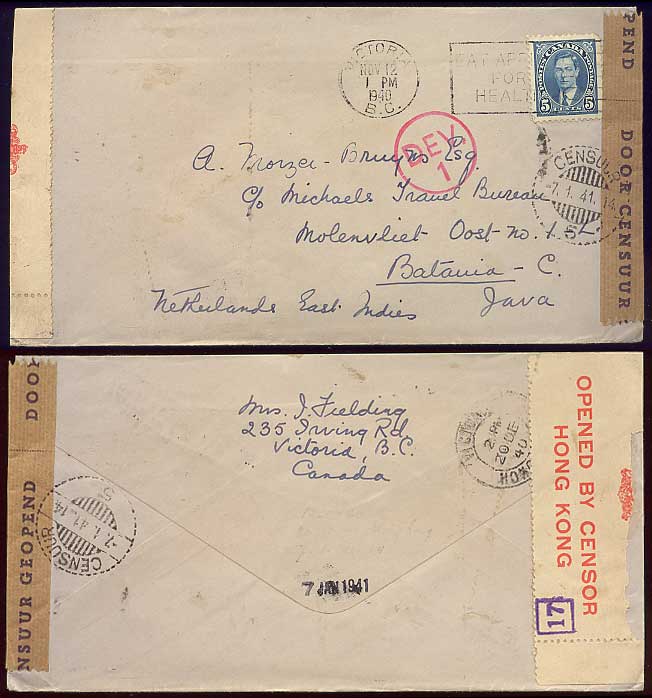 VICTORIA
NOV 12
1 PM
1940
B.C.
EAT AP
FOR
HEALT
POSTES CANADA POSTAGE
5 CENTS 5
DEV.
1
A. Morzer-Bruyns Esq.
c/o Michaels Travel Bureau
Molenvliet Oost no. 1
Batavia - C.
Netherlands East Indies Java
CENSUUR
-7.1.41.14
5
PEND
DOOR CENSUUR
DOOR
NSUUR GEOPEND
Mrs. J. Fielding
235 Irving Rd,
Victoria, B.C.
Canada
VICTO
2 PM
20 DE
40
HON
CENSUUR
-7.1.41.14
5
7 JAN 1941
OPENED BY CENSOR
HONG KONG
17